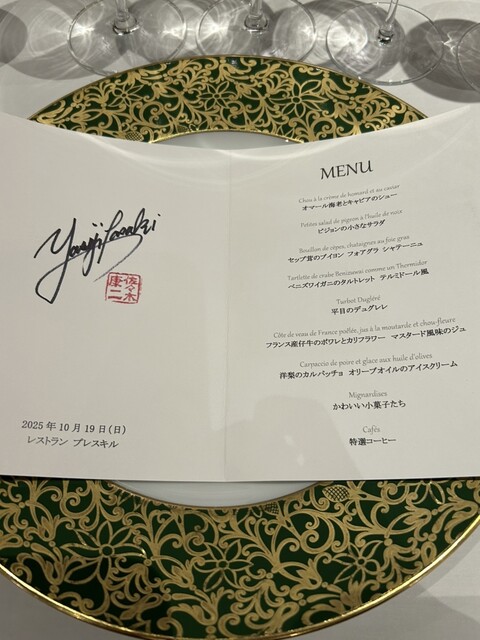 佐々木
康二
2025年10月19日(日)
レストラン プレスキル
MENU
Chou à la crème de homard et au caviar
オマール海老とキャビアのシュー
Petites salad de pigeon à l'huile de noix
ピジョンの小さなサラダ
Bouillon de cèpes, chataignes au foie gras
セップ茸のブイヨン フォアグラ シャテーニュ
Tartlette de crabe Benizuwai comme un Thermidor
ベニズワイガニのタルトレット テルミドール風
Turbot Dugléré
平目のデュグレレ
Côte de veau de France poêlés, jus à la moutarde et chou-fleure
フランス産仔牛のポワレとカリフラワー マスタード風味のジュ
Carpaccio de poire et glace aux huile d'olives
洋梨のカルパッチョ オリーブオイルのアイスクリーム
Mignardises
かわいい小菓子たち
Cafés
特選コーヒー